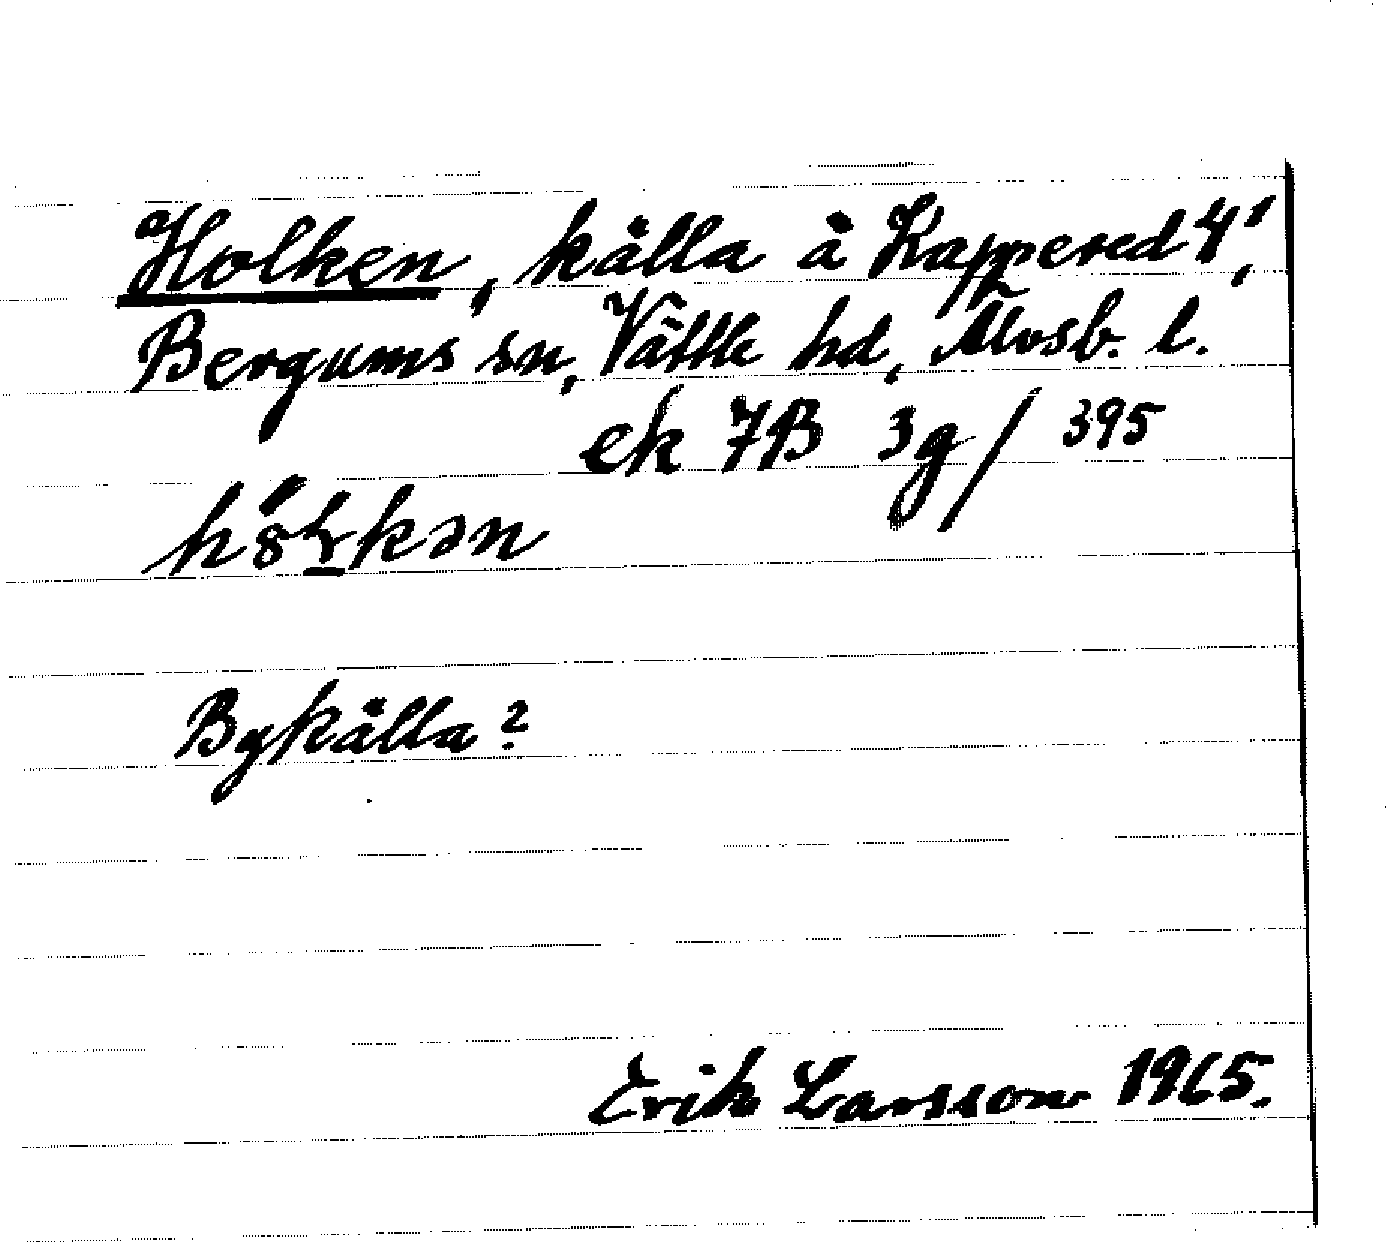 Holken, källa å Kappered 4¹,
Bergums sn, Vättle hd, Älvsb. l.
ek 7B 3g/395
Bykälla?
Erik Larsson 1965.